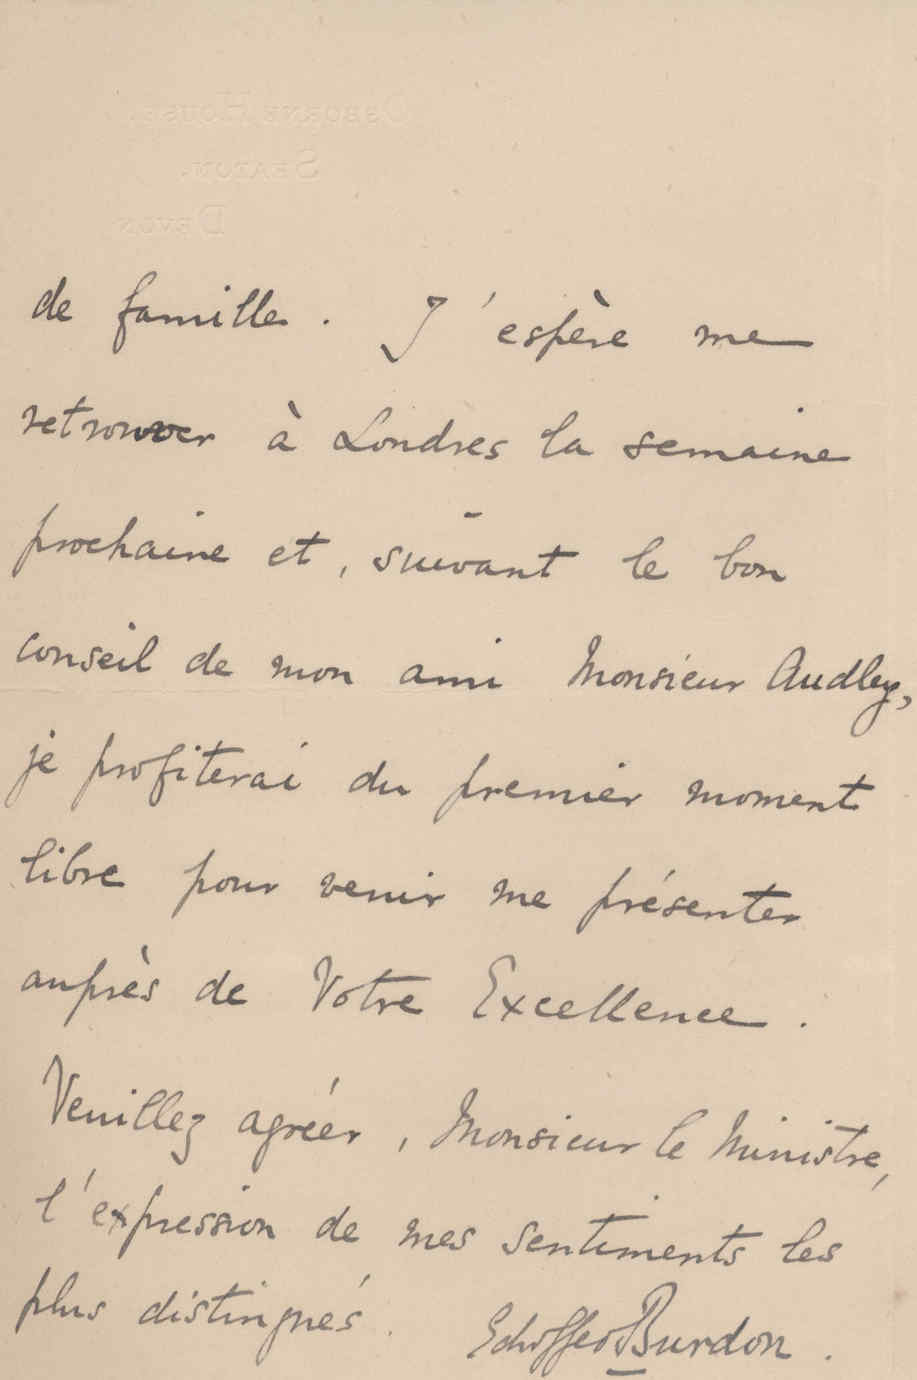 OSBORNE HOUSE,
SEATON.
DEVON
de famille. J'espère me
retrouver à Londres la semaine
prochaine et, suivant le bon
conseil de mon ami Monsieur Audley,
je profiterai du premier moment
libre pour venir me présenter
auprès de Votre Excellence.
Veuillez agréer, Monsieur le Ministre,
l'expression de mes sentiments les
plus distingués.
Burdon.